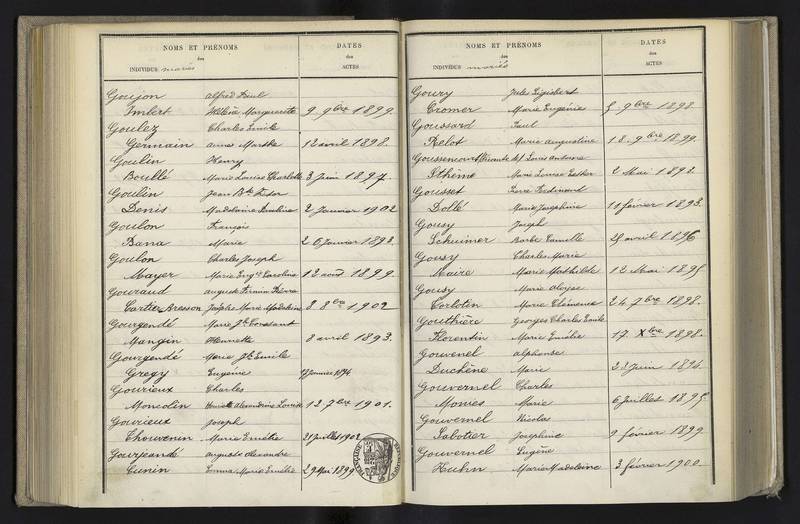 NOMS ET PRÉNOMS DATES
des des
INDIVIDUS mariés ACTES
Goujon Alfred Paul
Imbert Hélène Marguerite 9. 9bre 1899
Goulez Charles Emile
Germain Anne Marthe 12 avril 1898.
Goulin Henry
Boullé Marie Louise Charlotte 3 Juin 1897.
Goulin Jean Bte
Denis Madeleine 2 Janvier 1902
Goulon François
Bana Marie 26 Janvier 1893.
Goulon Charles Joseph
Mayer Marie Caroline 12 août 1899.
Gouraud Auguste Pierre
Cartier-Bresson Josèphe Marie Madeleine 8 8bre 1902
Gourgendé Marie Jh Constant
Mangin Henriette 8 avril 1893.
Gourgendé Marie Jh Emile
Gregy Eugénie 17 Janvier 1894
Gourieux Charles
Moncolin Henriette Alexandrine Louise 12 7bre 1901.
Gourieux Joseph
Thouvenin Marie Emélie 21 Juillet 1902
Gourjeandé Auguste Alexandre
Cunin Emma Marie Emélie 29 Mai 1899
NOMS ET PRÉNOMS DATES
des des
INDIVIDUS mariés ACTES
Goury Jules Sigisbert
Cromer Marie Eugénie 9bre 1898
Goussard Paul
Relot Marie Augustine 18. 9bre 1899.
Louis Antoine
Sthème Marie Louise Esther 2 Mai 1893.
Gousset Pierre Ferdinand
Dollé Marie Joséphine 11 février 1893.
Gousy Joseph
Schuimer Barbe Camille 25 avril 1896
Gousy Charles Marie
Maire Marie Mathilde 12 Mai 1895
Gousy Marie Aloyse
Corlotin Marie Clémence 24 7bre 1898.
Gouthière Georges Charles Emile
Florentin Marie Emélie 17. Xbre 1898.
Gouvenel Alphonse
Duchêne Marie Juin 1894.
Gouvernel Charles
Monies Marie 6 Juillet 1895.
Gouvernel Nicolas
Sabotier Joséphine 9 février 1899
Gouvernel Eugène
Huhn Marie Madeleine 3 février 1900.